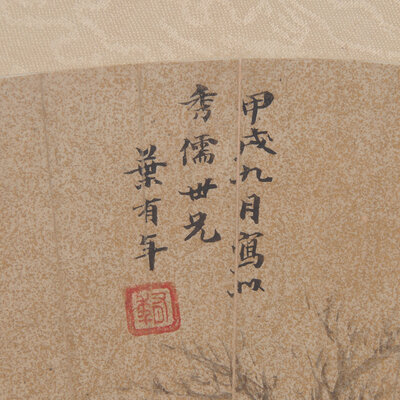 甲戌九月寫似
秀儒世兄
葉有年